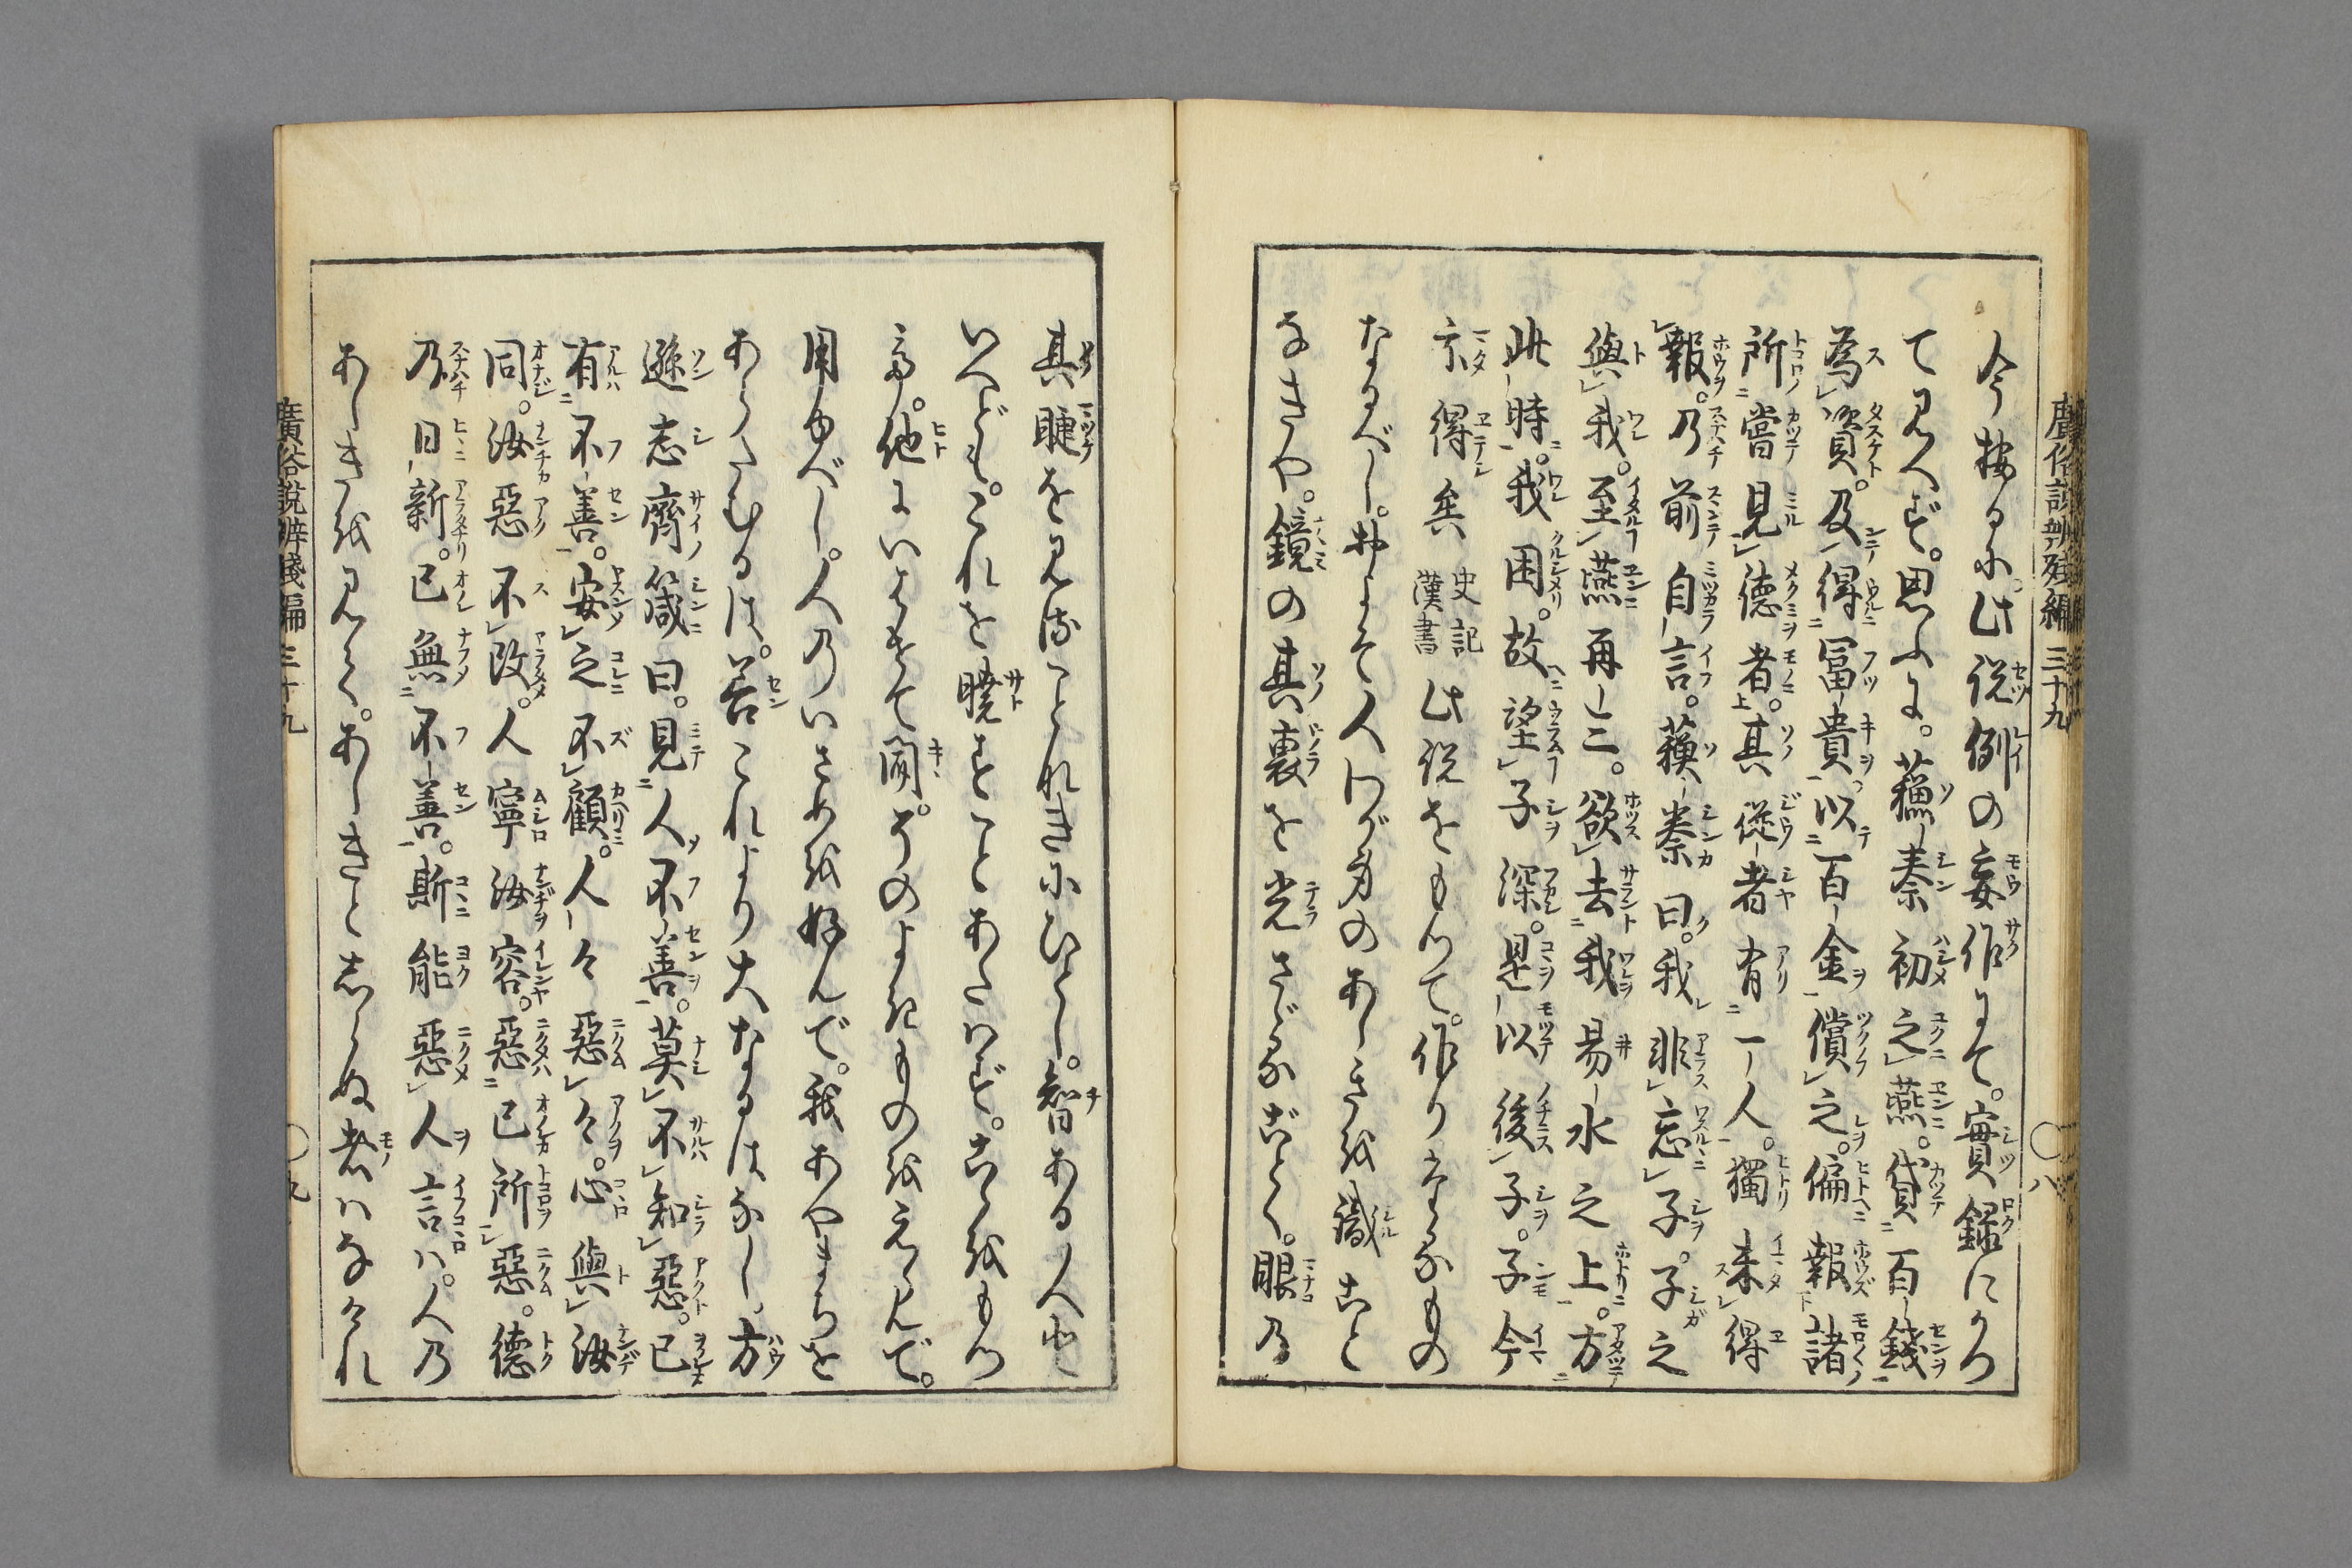 今按るに。此説例の妄作にて。實録にかつ
て見へず。思ふに。蘓秦初之燕。貸百錢
爲資。及得冨貴。以百金償之。偏報諸
所嘗見德者。其從者有一人。獨未得
報。乃前自言。蘓秦曰。我非忘子。子之
與我。至燕再三。欲去我易水之上。方
此時。我困。故望子深。是以後子。子今
亦得矣 史記漢書 此説をもつて。作りたるもの
なるべし。おょそ人わが身のあしきを識こと
なきや。鏡の其裏を光さゞるごとく。眼乃
廣俗説辨殘編 三十九 〇八
其睫を見ることれきにひとし。智ある人と
いへども。これを曉すことあたはず。こゝをもつ
て。他にいはせて聞。そのよきものをえらんで。
用ゆべし。人乃いさめを好んで。我あやまちを
あらたむるは。善これより大なるはなし。方
遜志齊箴曰。見人不善。莫不知惡。已
有不善。安之不顧。人々惡々。心與汝
同。汝惡不改。人寧汝容。惡已所惡。德
乃日新。已無不善。斯能惡人言ハ。人乃
あしきを見て。あしきとしらぬ者ハなけれ
廣俗説辨殘編 三十九 〇九